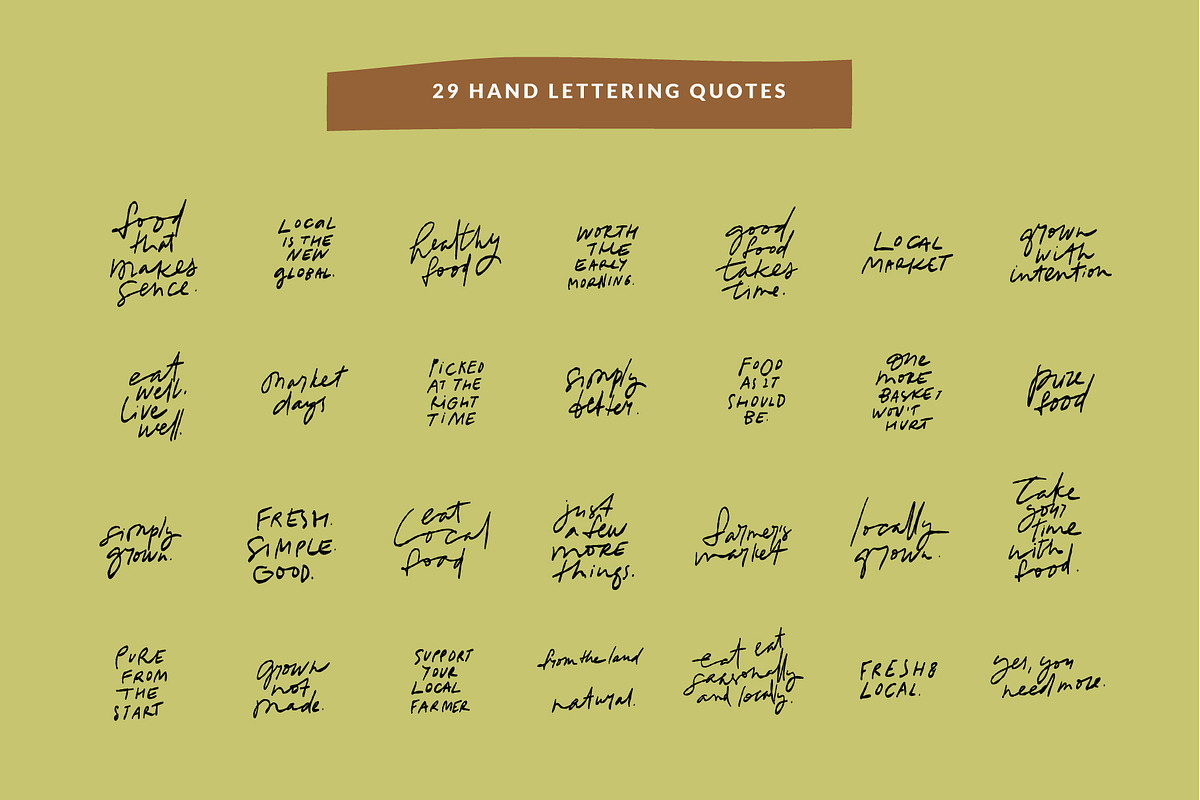 29 HAND LETTERING QUOTES
food
that
makes
sence.
LOCAL
IS THE
NEW
GLOBAL.
healthy
food
WORTH
THE
EARLY
MORNING.
good
food
takes
time.
LOCAL
MARKET
grown
with
intention
eat
well.
live
well.
market
days
PICKED
AT THE
RIGHT
TIME
simply
better.
FOOD
AS IT
SHOULD
BE.
One
MORE
BASKET
WON'T
HURT
pure
food
simply
grown.
FRESH.
SIMPLE.
GOOD.
eat
Local
food
just
a few
MORE
things.
farmer's
market
locally
grown.
Take
your
time
with
food.
PURE
FROM
THE
START
grown
not
made.
SUPPORT
YOUR
LOCAL
FARMER
from the land
natural.
eat eat
seasonally
and locally.
FRESH &
LOCAL.
yes, you
need more.